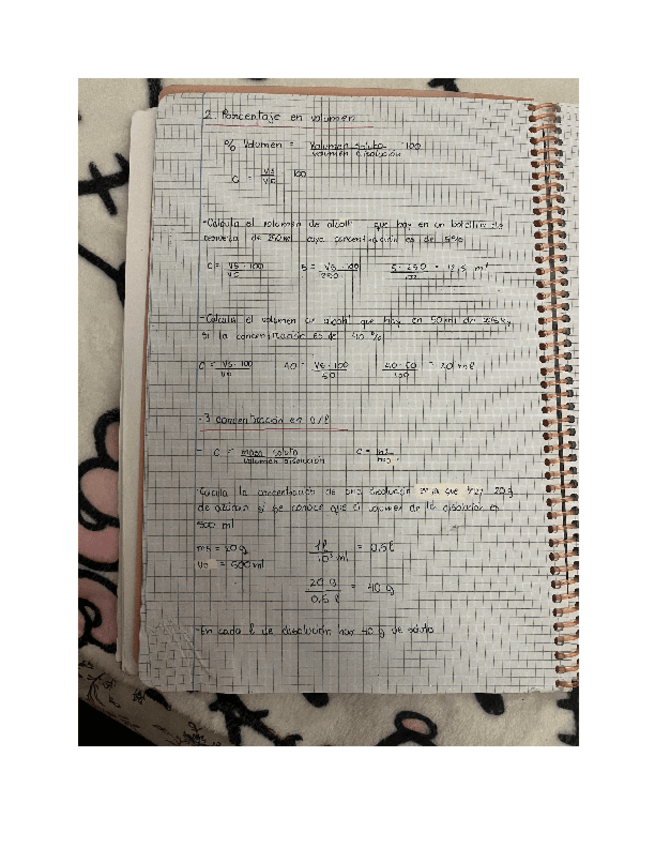 2. Porcentaje en volumen
% Volumen = Volumen soluto / volumen disolución · 100
C = Vs / VD · 100
-Calcula el volumen de alcohol que hay en un botellín de
cerveza de 250ml cuya concentración es de 5%
C = Vs · 100 / VD 5 = Vs · 100 / 250 5 · 250 / 100 = 12,5 ml
-Calcula el volumen de alcohol que hay en 50ml de
si la concentración es de 40 %
C = Vs · 100 / VD 40 = Vs · 100 / 50 40 · 50 / 100 = 20 ml
·3 concentración en g/l
- C = masa soluto / volumen disolución C =
-Calcula la concentración de una disolución en la que hay 20g
de azúcar si se conoce que el volumen de la disolución es
500 ml
ms = 20g 1l / 10³ ml = 0,5l
VD = 500ml
20 g / 0,5 l = 40 g
-En cada l de disolución hay 40 g de soluto